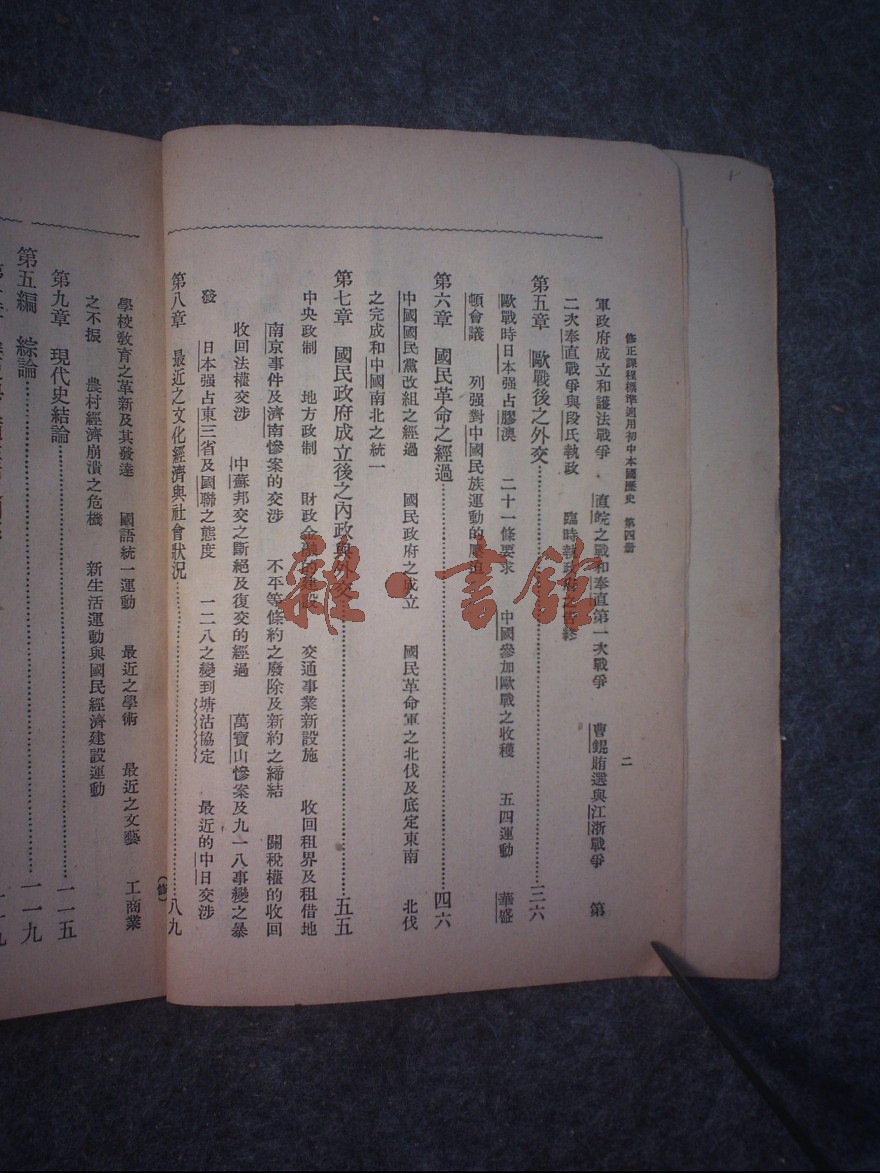 修正課程標準適用初中本國歷史　第四冊　二
軍政府成立和護法戰爭　直皖之戰和奉直第一次戰爭　曹錕賄選與江浙戰爭　第
二次奉直戰爭與段氏執政　臨時執政府之告終
第五章　歐戰後之外交…………三六
歐戰時日本强占膠澳　二十一條要求　中國參加歐戰之收穫　五四運動　華盛
頓會議　列强對中國民族運動的壓迫
第六章　國民革命之經過…………四六
中國國民黨改組之經過　國民政府之成立　國民革命軍之北伐及底定東南　北伐
之完成和中國南北之統一
第七章　國民政府成立後之內政與外交…………五五
中央政制　地方政制　財政金融的建設　交通事業新設施　收回租界及租借地
南京事件及濟南慘案的交涉　不平等條約之廢除及新約之締結　關稅權的收回
收回法權交涉　中蘇邦交之斷絕及復交的經過　萬寶山慘案及九一八事變之暴
發　日本强占東三省及國聯之態度　一二八之變到塘沽協定　最近的中日交涉
第八章　最近之文化經濟與社會狀況…………八九
（修）
學校教育之革新及其發達　國語統一運動　最近之學術　最近之文藝　工商業
之不振　農村經濟崩潰之危機　新生活運動與國民經濟建設運動
第九章　現代史結論…………一一五
第五編　綜論…………一一九
雜·書館